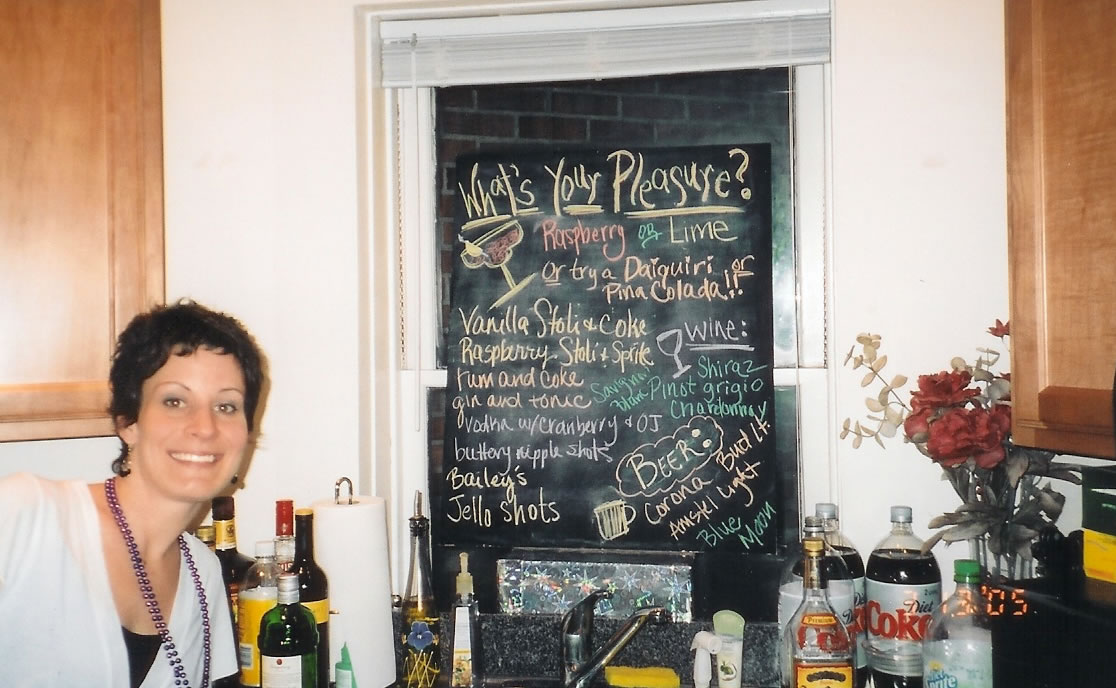 What's Your Pleasure?
Raspberry OR Lime
Or try a Daiquiri or
Pina Colada!!
Vanilla Stoli & Coke
Raspberry Stoli & Sprite
rum and coke
gin and tonic
vodka w/cranberry & OJ
buttery nipple shots
Bailey's
Jello Shots
Wine:
Shiraz
Pinot grigio
Chardonnay
BEER
Bud lt.
Corona
Amstel Light
Blue Moon
PREMIUM
Diet
Coke
'05